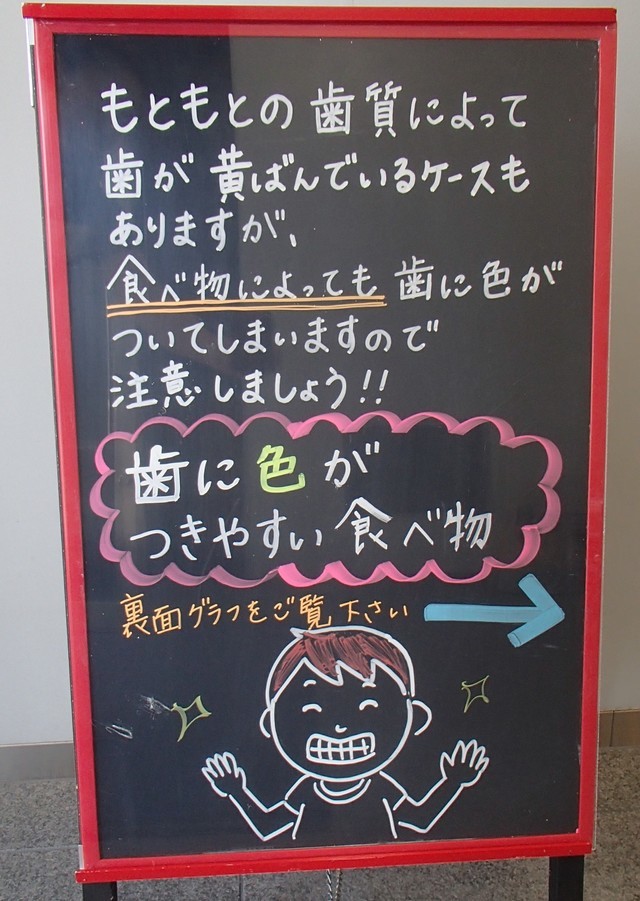 もともとの歯質によって
歯が黄ばんでいるケースも
ありますが、
食べ物によっても歯に色が
ついてしまいますので
注意しましょう!!
歯に色が
つきやすい食べ物
裏面グラフをご覧下さい